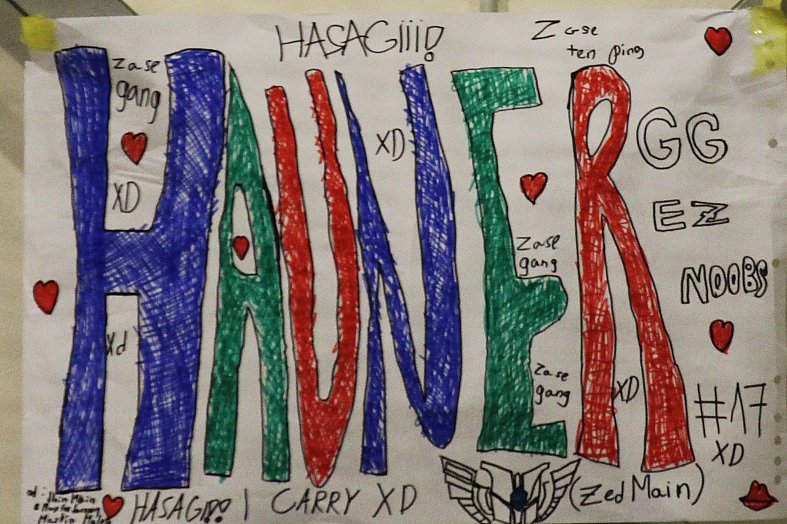 HASAGIIII!
Zase
ten ping
zase
gang
XD
HAUNER
XD
GG
EZ
NOOBS
zase
gang
Xd
zase
gang
XD
#17
XD
HASAGI!! I CARRY XD
(Zed Main)